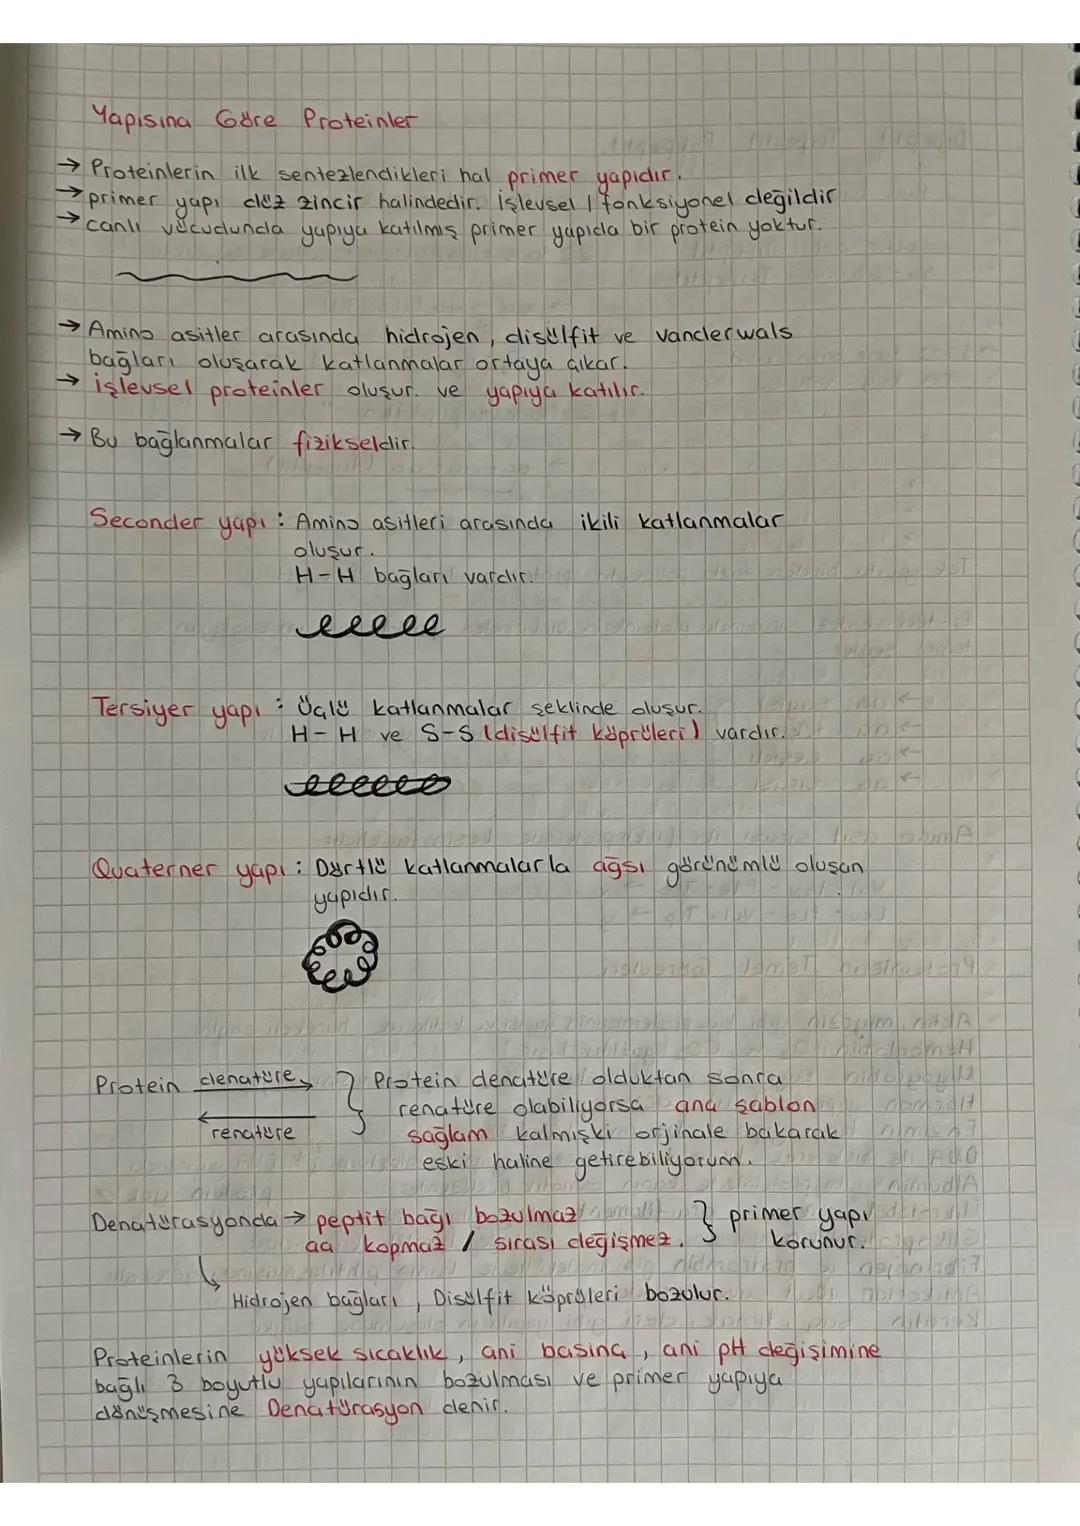 Yapısına Göre Proteinler
→ Proteinlerin ilk sentezlendikleri hal primer yapıdır.
→ primer yapı düz zincir halindedir. İşlevsel / fonksiyonel değildir
→ canlı vücudunda yapıya katılmış primer yapıda bir protein yoktur.
→ Amino asitler arasında hidrojen, disülfit ve vanderwals
bağları oluşarak katlanmalar ortaya çıkar.
→ işlevsel proteinler oluşur. ve yapıya katılır.
→ Bu bağlanmalar fizikseldir.
Seconder yapı : Amino asitleri arasında ikili katlanmalar
oluşur.
H-H bağları vardır.
Tersiyer yapı : Üçlü katlanmalar şeklinde oluşur.
H-H ve S-S (disülfit köprüleri) vardır.
Quaterner yapı : Dörtlü katlanmalarla ağsı görünümlü oluşan
yapıdır.
Protein denatüre → } Protein denatüre olduktan sonra
← renatüre
renatüre olabiliyorsa ana şablon
sağlam kalmışki orjinale bakarak
eski haline getirebiliyorum.
Denatürasyonda → peptit bağı bozulmaz } primer yapı
aa kopmaz / sırası değişmez. korunur.
↳ Hidrojen bağları, Disülfit köprüleri bozulur.
Proteinlerin yüksek sıcaklık, ani basınç, ani pH değişimine
bağlı 3 boyutlu yapılarının bozulması ve primer yapıya
dönüşmesine Denatürasyon denir.